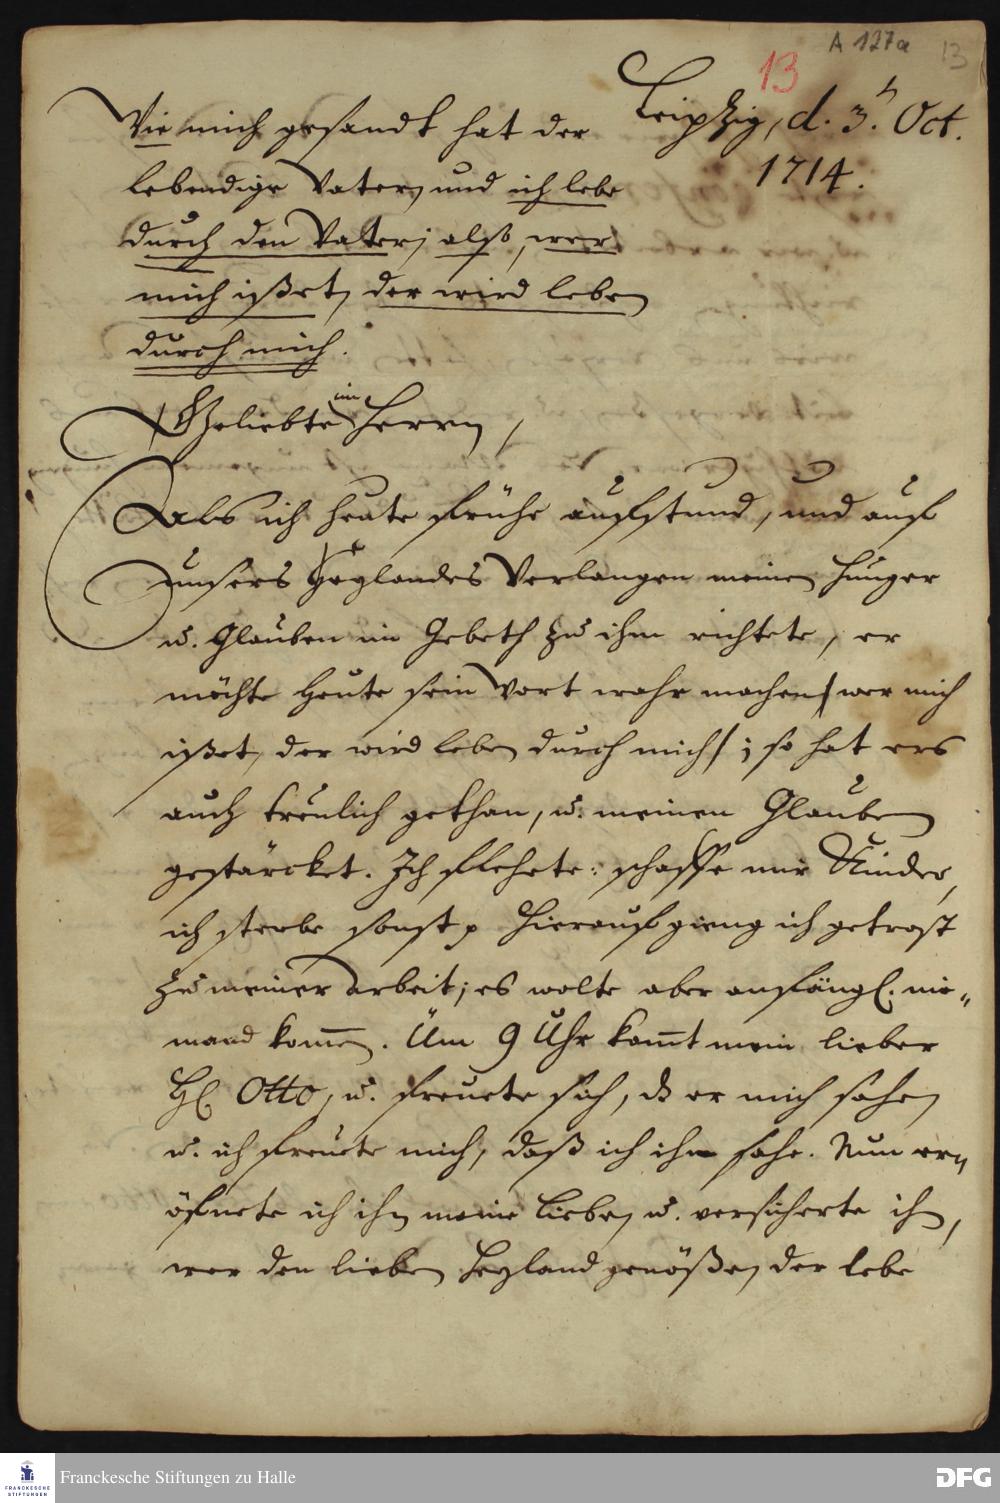 A 127a 13
13
Leipzig, d. 3.t Oct.
1714.
Wie mich gesandt hat der
lebendige Vater, und ich lebe
durch den Vater; also, wer
mich ißet, der wird leben
durch mich.
Geliebte im Herrn,
Als ich heute frühe aufstund, und auf
unsers Heylandes Verlangen meinen Hunger
u. Glauben im Gebeth zu ihm richtete, er
möchte heute sein Wort wahr machen / wer mich
ißet, der wird leben durch mich /; so hat ers
auch treulich gethan, u. meinen Glauben
gestärcket. Ich flehete: schaffe mir Kinder,
ich sterbe sonst p Hierauf gieng ich getrost
zu meiner arbeit; es wolte aber anfängl. nie-
mand kom̅en. Um 9 Uhr kom̅t mein lieber
H. Otto, u. freuete sich, dß er mich sahe,
u. ich freuete mich, daß ich ihn sahe. Nun er-
öfnete ich ihm meine Liebe, u. versicherte ihn,
wer den lieben Heyland genöße, der lebe
FRANCKESCHE STIFTUNGEN
Franckesche Stiftungen zu Halle
DFG